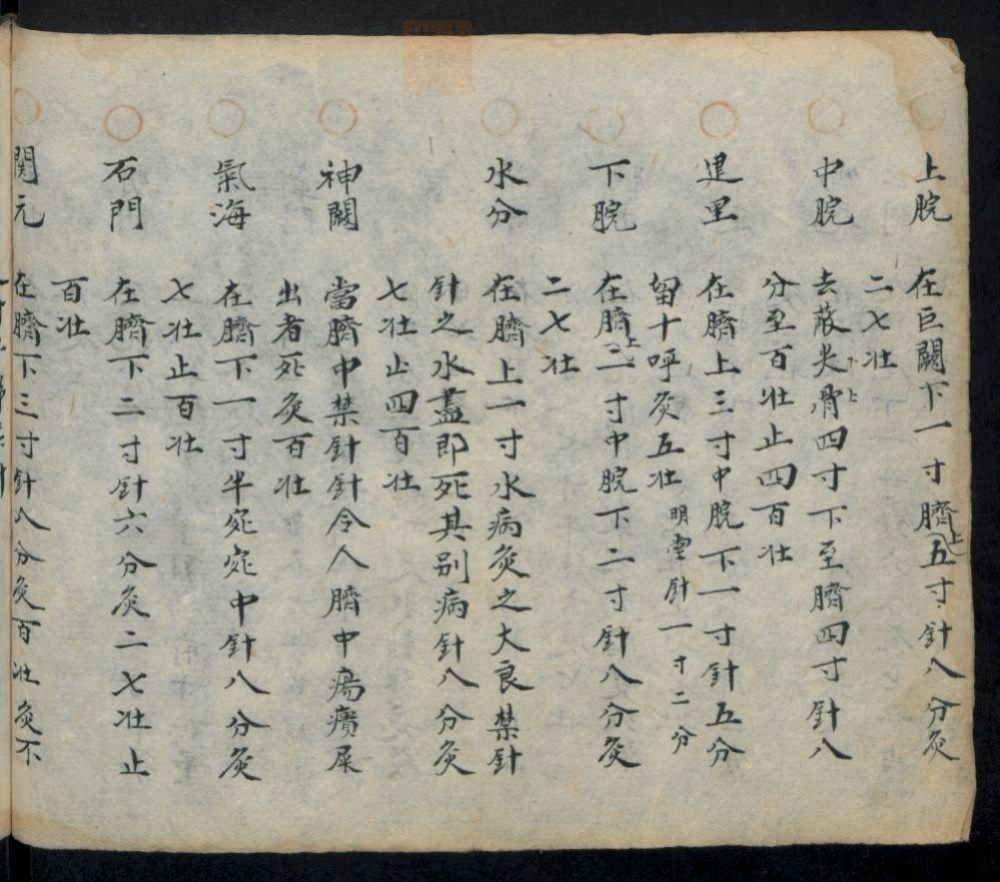 上脘 在巨闕下一寸臍上五寸針八分灸
二七壯
中脘 去蔽尖骨下四寸下至臍上四寸針八
分至百壯止四百壯
建里 在臍上三寸中脘下一寸針五分
留十呼灸五壯 明堂針一寸二分
下脘 在臍上二寸中脘下二寸針八分灸
二七壯
水分 在臍上一寸水病灸之大良禁針
針之水盡即死其别病針八分灸
七壯止四百壯
神闕 當臍中禁針針令人臍中瘍潰屎
出者死灸百壯
氣海 在臍下一寸半宛宛中針八分灸
七壯止百壯
石門 在臍下二寸針六分灸二七壯止
百壯
関元 在臍下三寸針八分灸百壯灸不